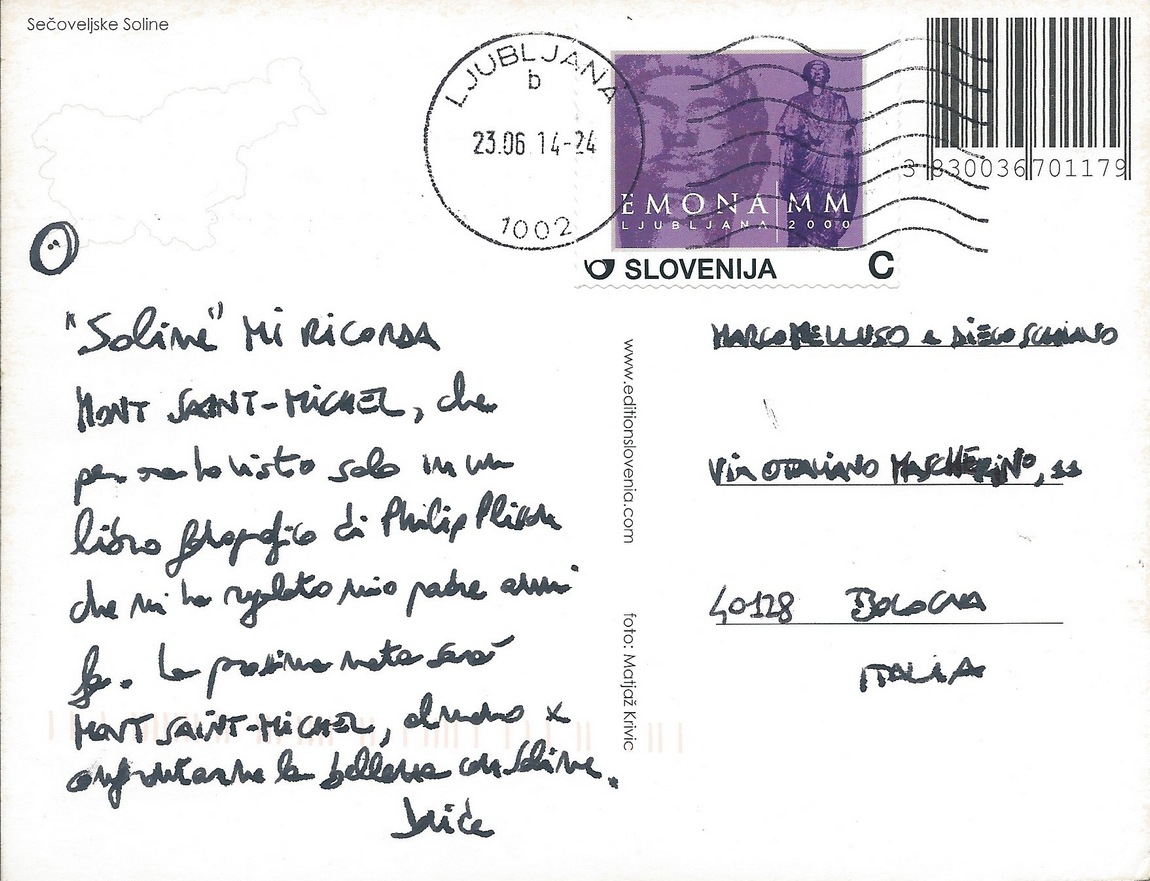 Sečoveljske Soline
LJUBLJANA
b
23.06 14-24
1002
EMONA MM
LJUBLJANA 2000
SLOVENIJA C
3 830036 701179
"Soline" MI RICORDA
MONT SAINT-MICHEL, che
per ora ho visto solo in un
libro fotografico di Philip Plisson
che mi ha regalato mio padre anni
fa. La prossima meta sarà
MONT SAINT-MICHEL, almeno x
confrontarne la bellezza con Soline.
www.editionslovenia.com
foto: Matjaž Krivic
MARCO MELLUSO e DIEGO SCHIAVO
VIA OTTAVIANO MASCHERINO, 11
40128 BOLOGNA
ITALIA